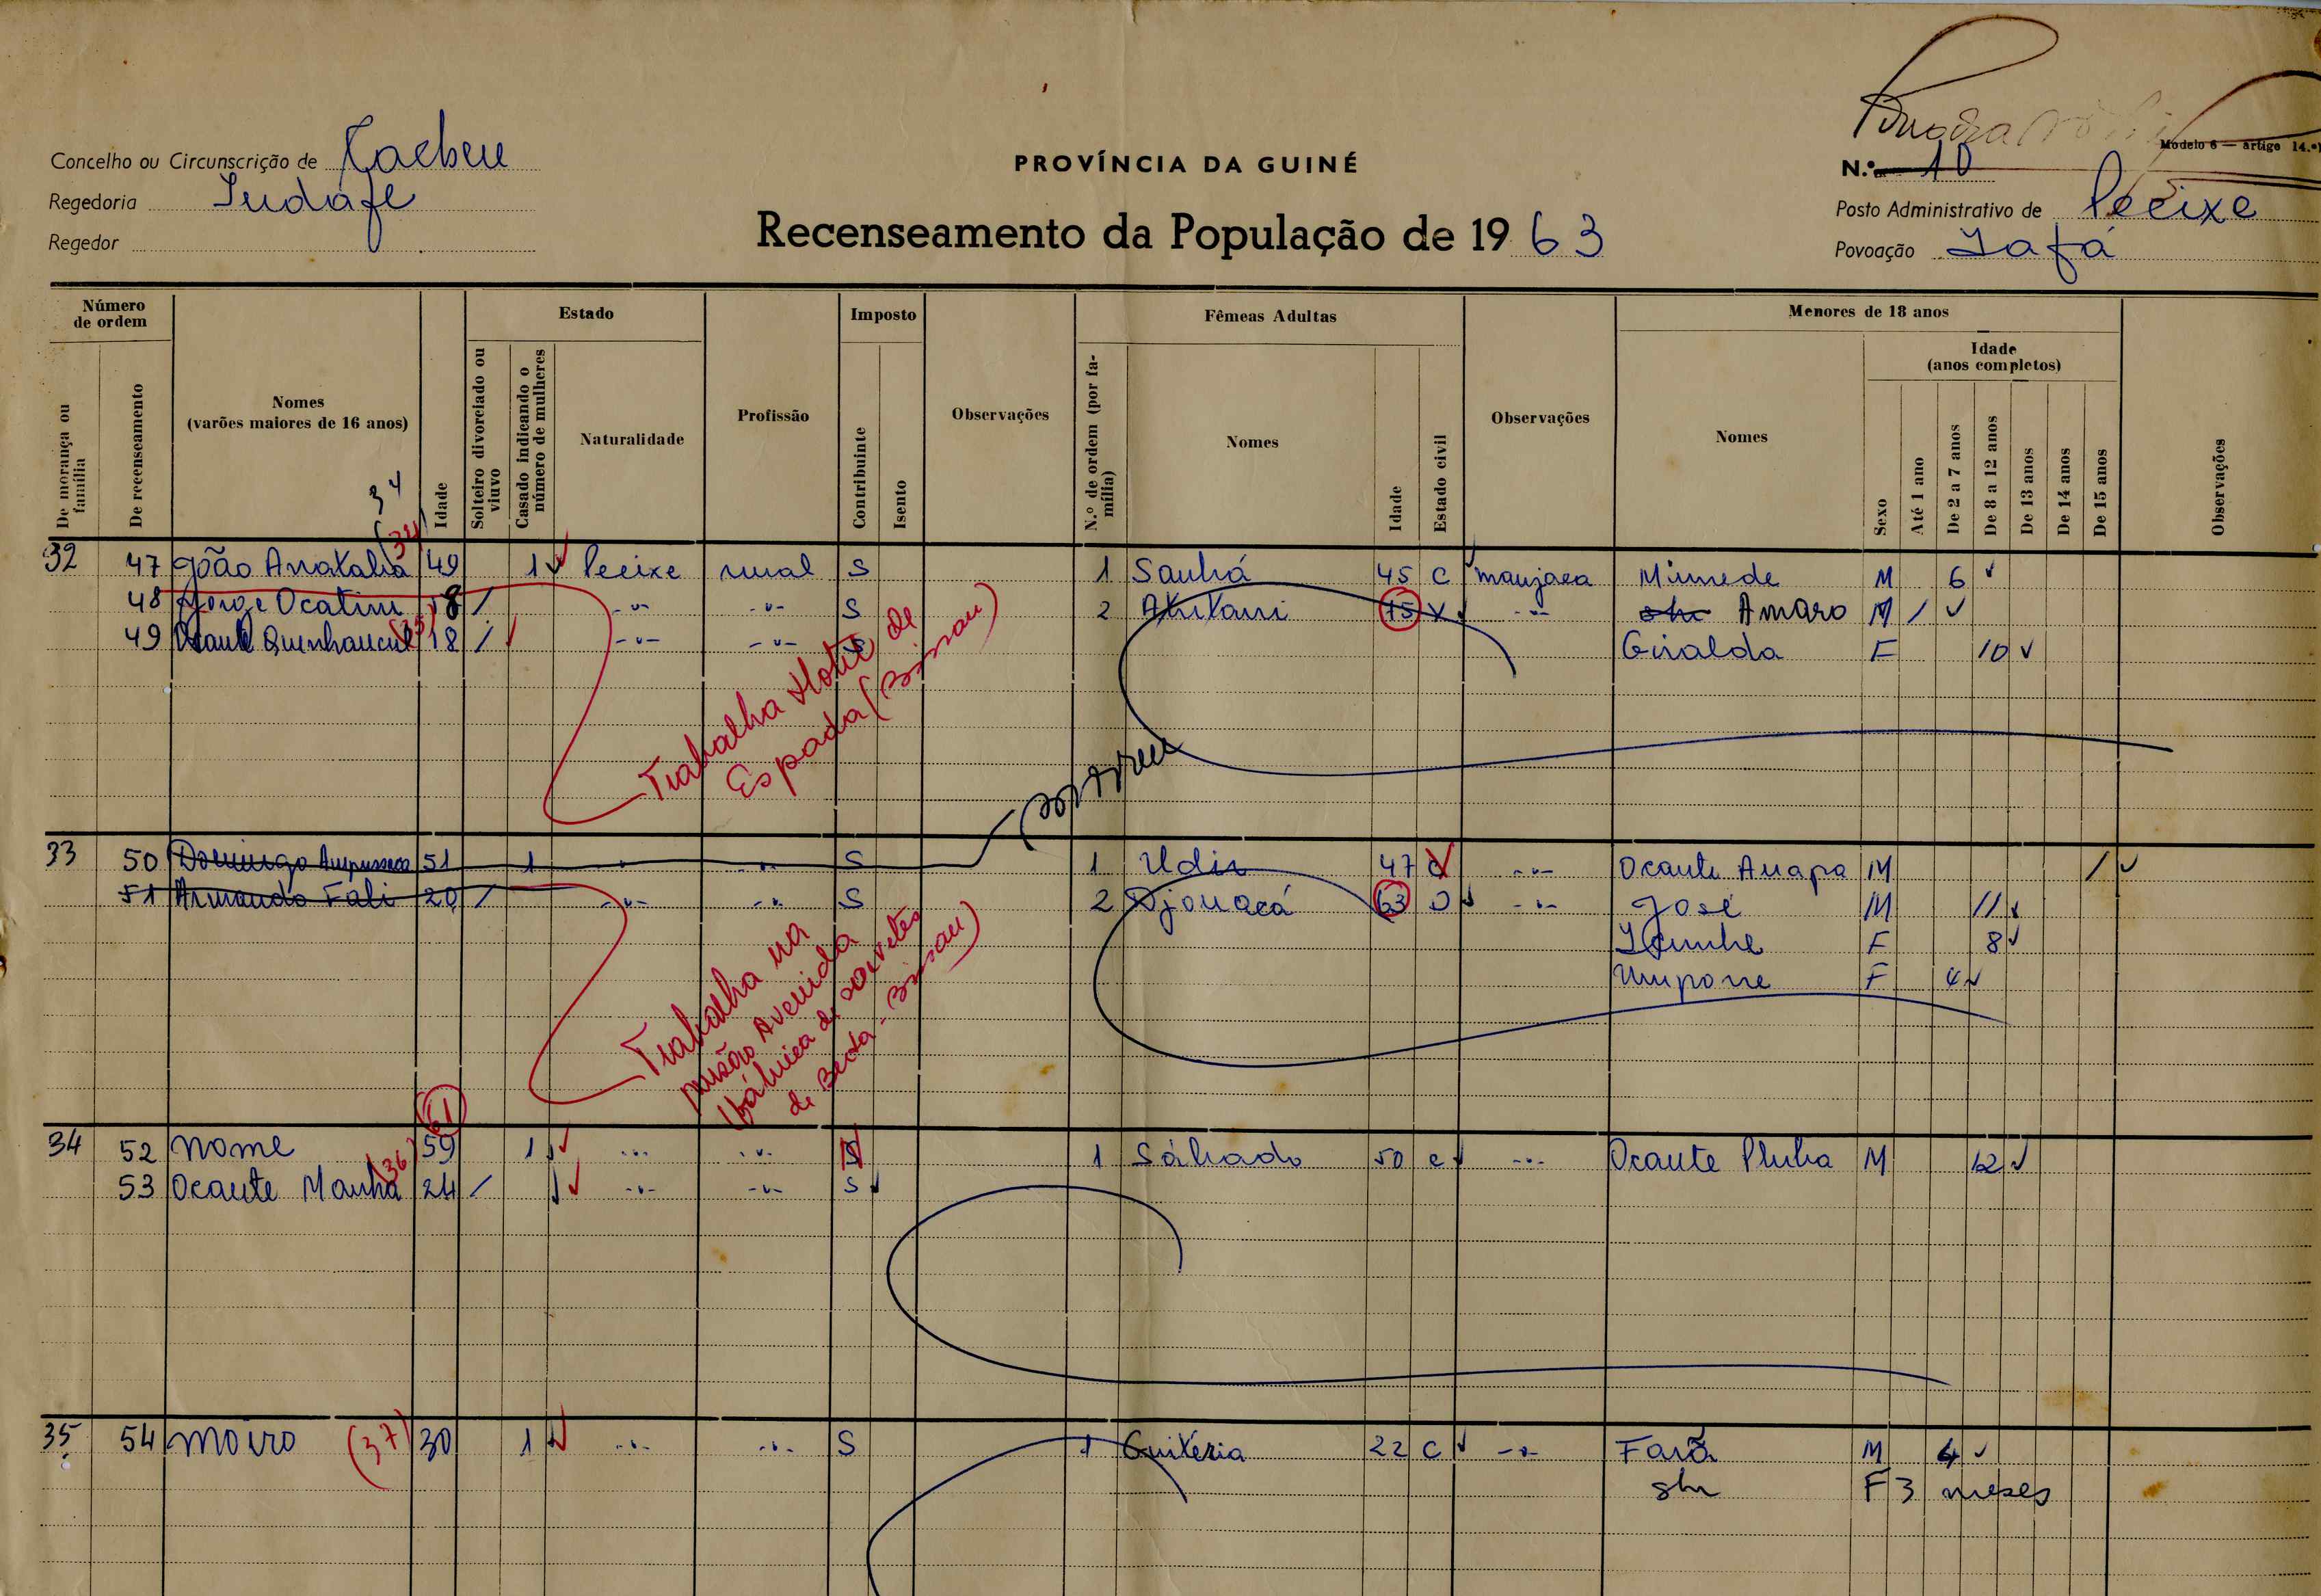 Concelho ou Circunscrição de Cacheu
Regedoria
Regedor
PROVÍNCIA DA GUINÉ
Recenseamento da População de 1963
Modelo 6 — artigo 14.º
N.º 10
Posto Administrativo de Pecixe
Povoação
Número de ordem
De morança ou família
De recenseamento
Nomes
(varões maiores de 16 anos)
34
(34)
Idade
Estado
Solteiro divorciado ou viuvo
Casado indicando o número de mulheres
Naturalidade
Profissão
Imposto
Contribuinte
Isento
Observações
Fêmeas Adultas
N.º de ordem (por família)
Nomes
Idade
Estado civil
Observações
Menores de 18 anos
Nomes
Sexo
Idade
(anos completos)
Até 1 ano
De 2 a 7 anos
De 8 a 12 anos
De 13 anos
De 14 anos
De 15 anos
Observações
32 47 João 49 1 Pecixe rural S 1 Sanhá 45 C manjaca M 6
48 Jorge 18 / -"- -"- S 2 75 -"- Amaro M /
49 18 / -"- -"- S Giralda F 10
Trabalha Hotel de
Espada (Bissau)
33 50 Domingo 51 1 " " S 1 47 -"- Ocante Anapa M /
51 Armando Fali 20 / -"- -"- S 2 63 -"- José M 11
F 8
F 4
Trabalha na
Avenida
de sorvetes
Bissau)
61
34 52 Nome 59 1 -"- -"- S 1 Sábado 50 C -"- Ocante M 12
53 Ocante (36) 24 / -"- -"- S
35 54 Moiro (37) 30 1 -"- -"- S 1 Guiteria 22 C -"- Fará M 4
F 3 meses